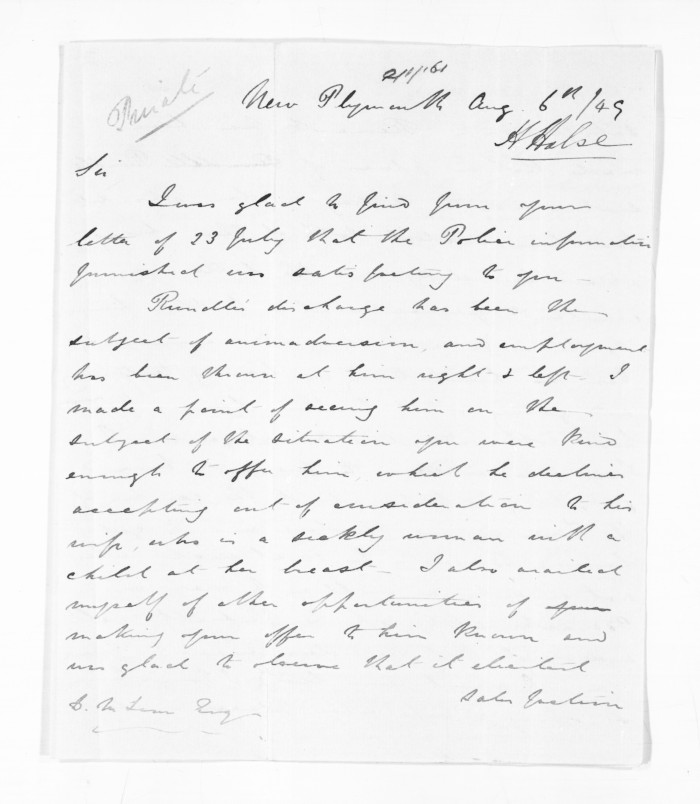 Private
New Plymouth Aug. 6th /49
H Halse
Sir
I was glad to find from your
letter of 23 July that the Police information
furnished was satisfactory to you –
Rundle's discharge has been the
subject of animadversion, and employment
has been thrown at him right & left. I
made a point of seeing him on the
subject of the situation you were kind
enough to offer him, which he declines
accepting out of consideration to his
wife, who is a sickly woman with a
child at her breast – I also availed
myself of other opportunities of
making your offer to him known and
was glad to observe that it elicited
satisfaction
D. McLean Esq